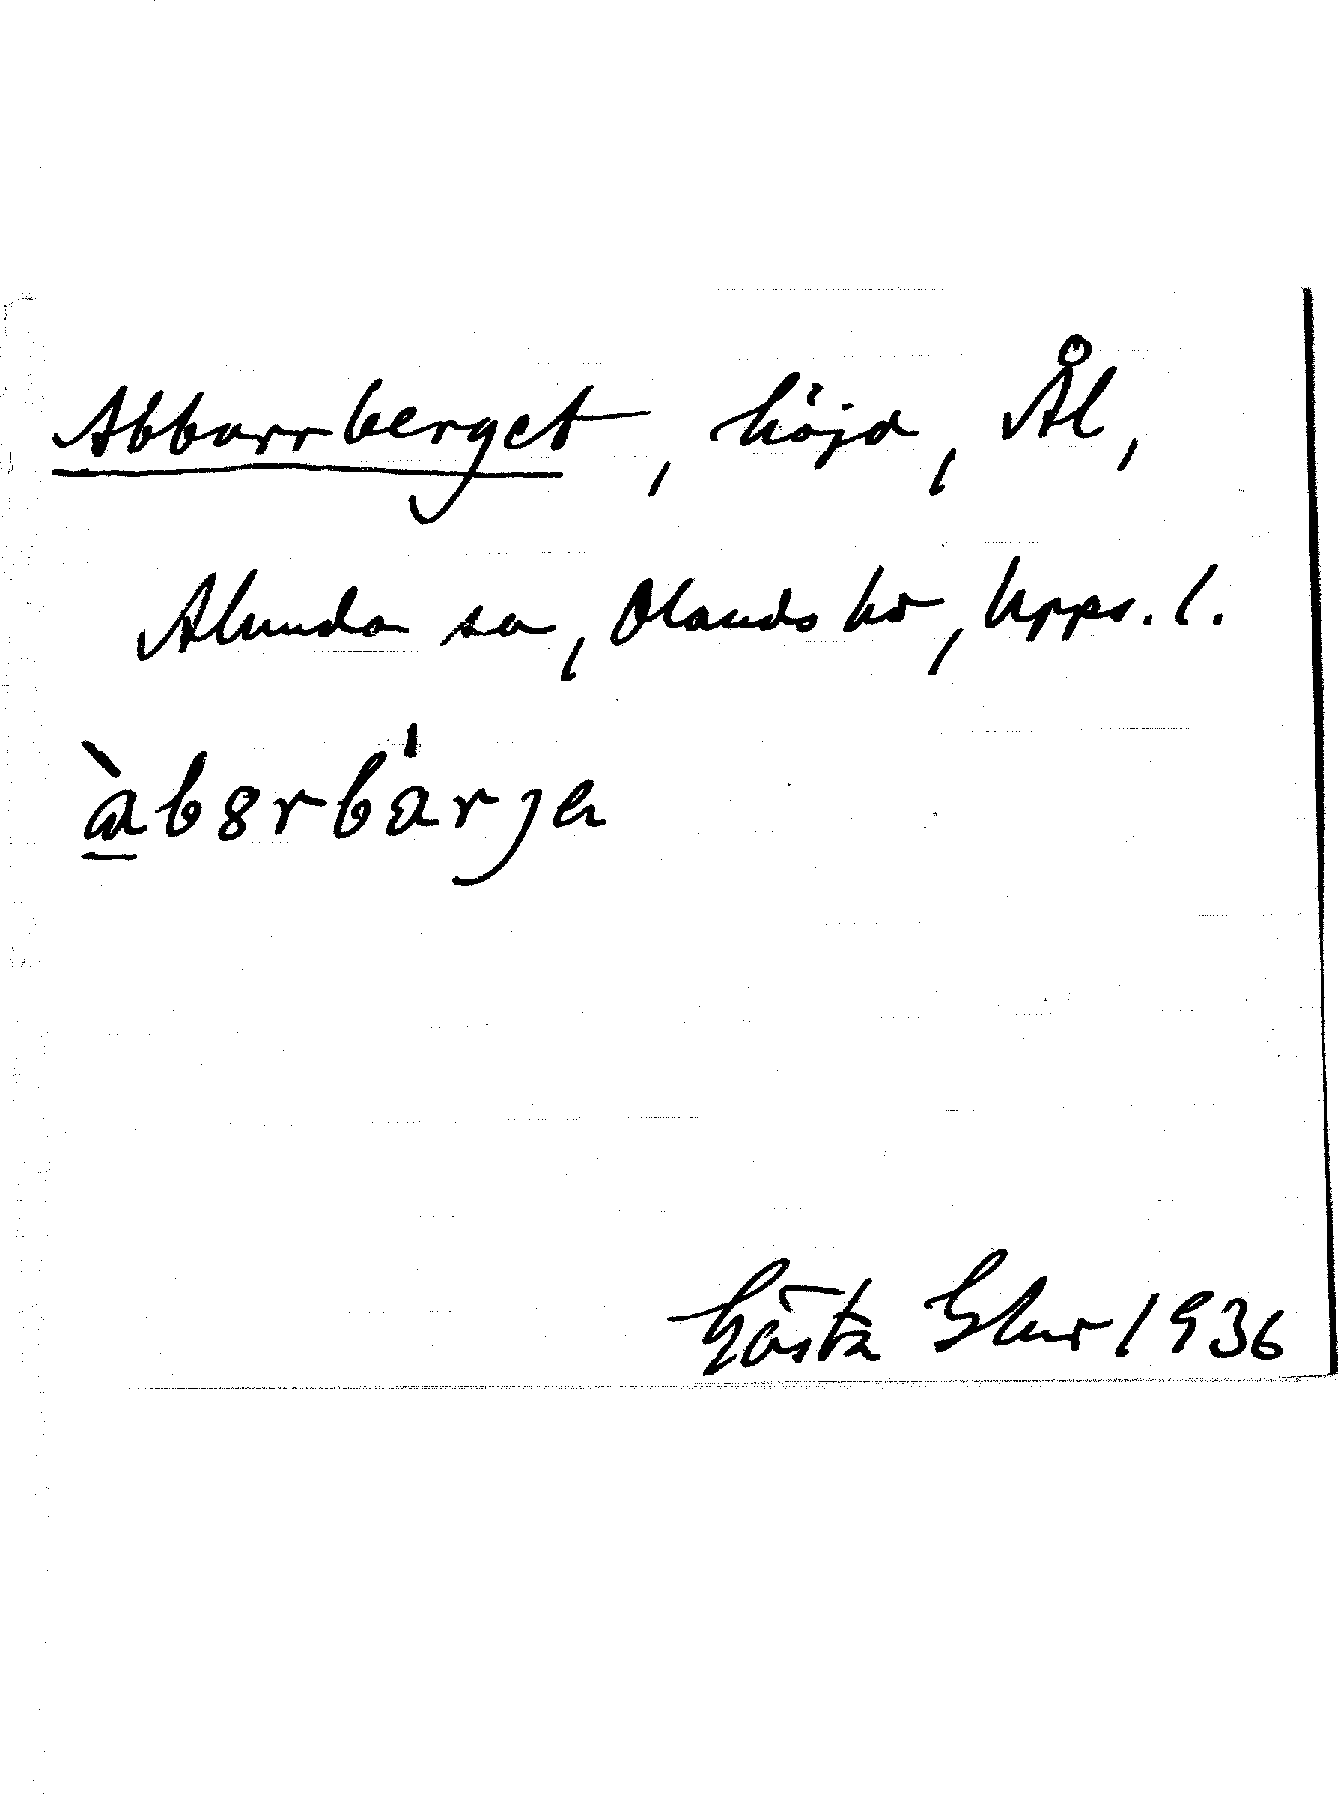 Abborrberget, höjd, Ål,
Alunda sn, Olands hd, Upps. l.
àbərbárjə
Gösta Ehur 1936